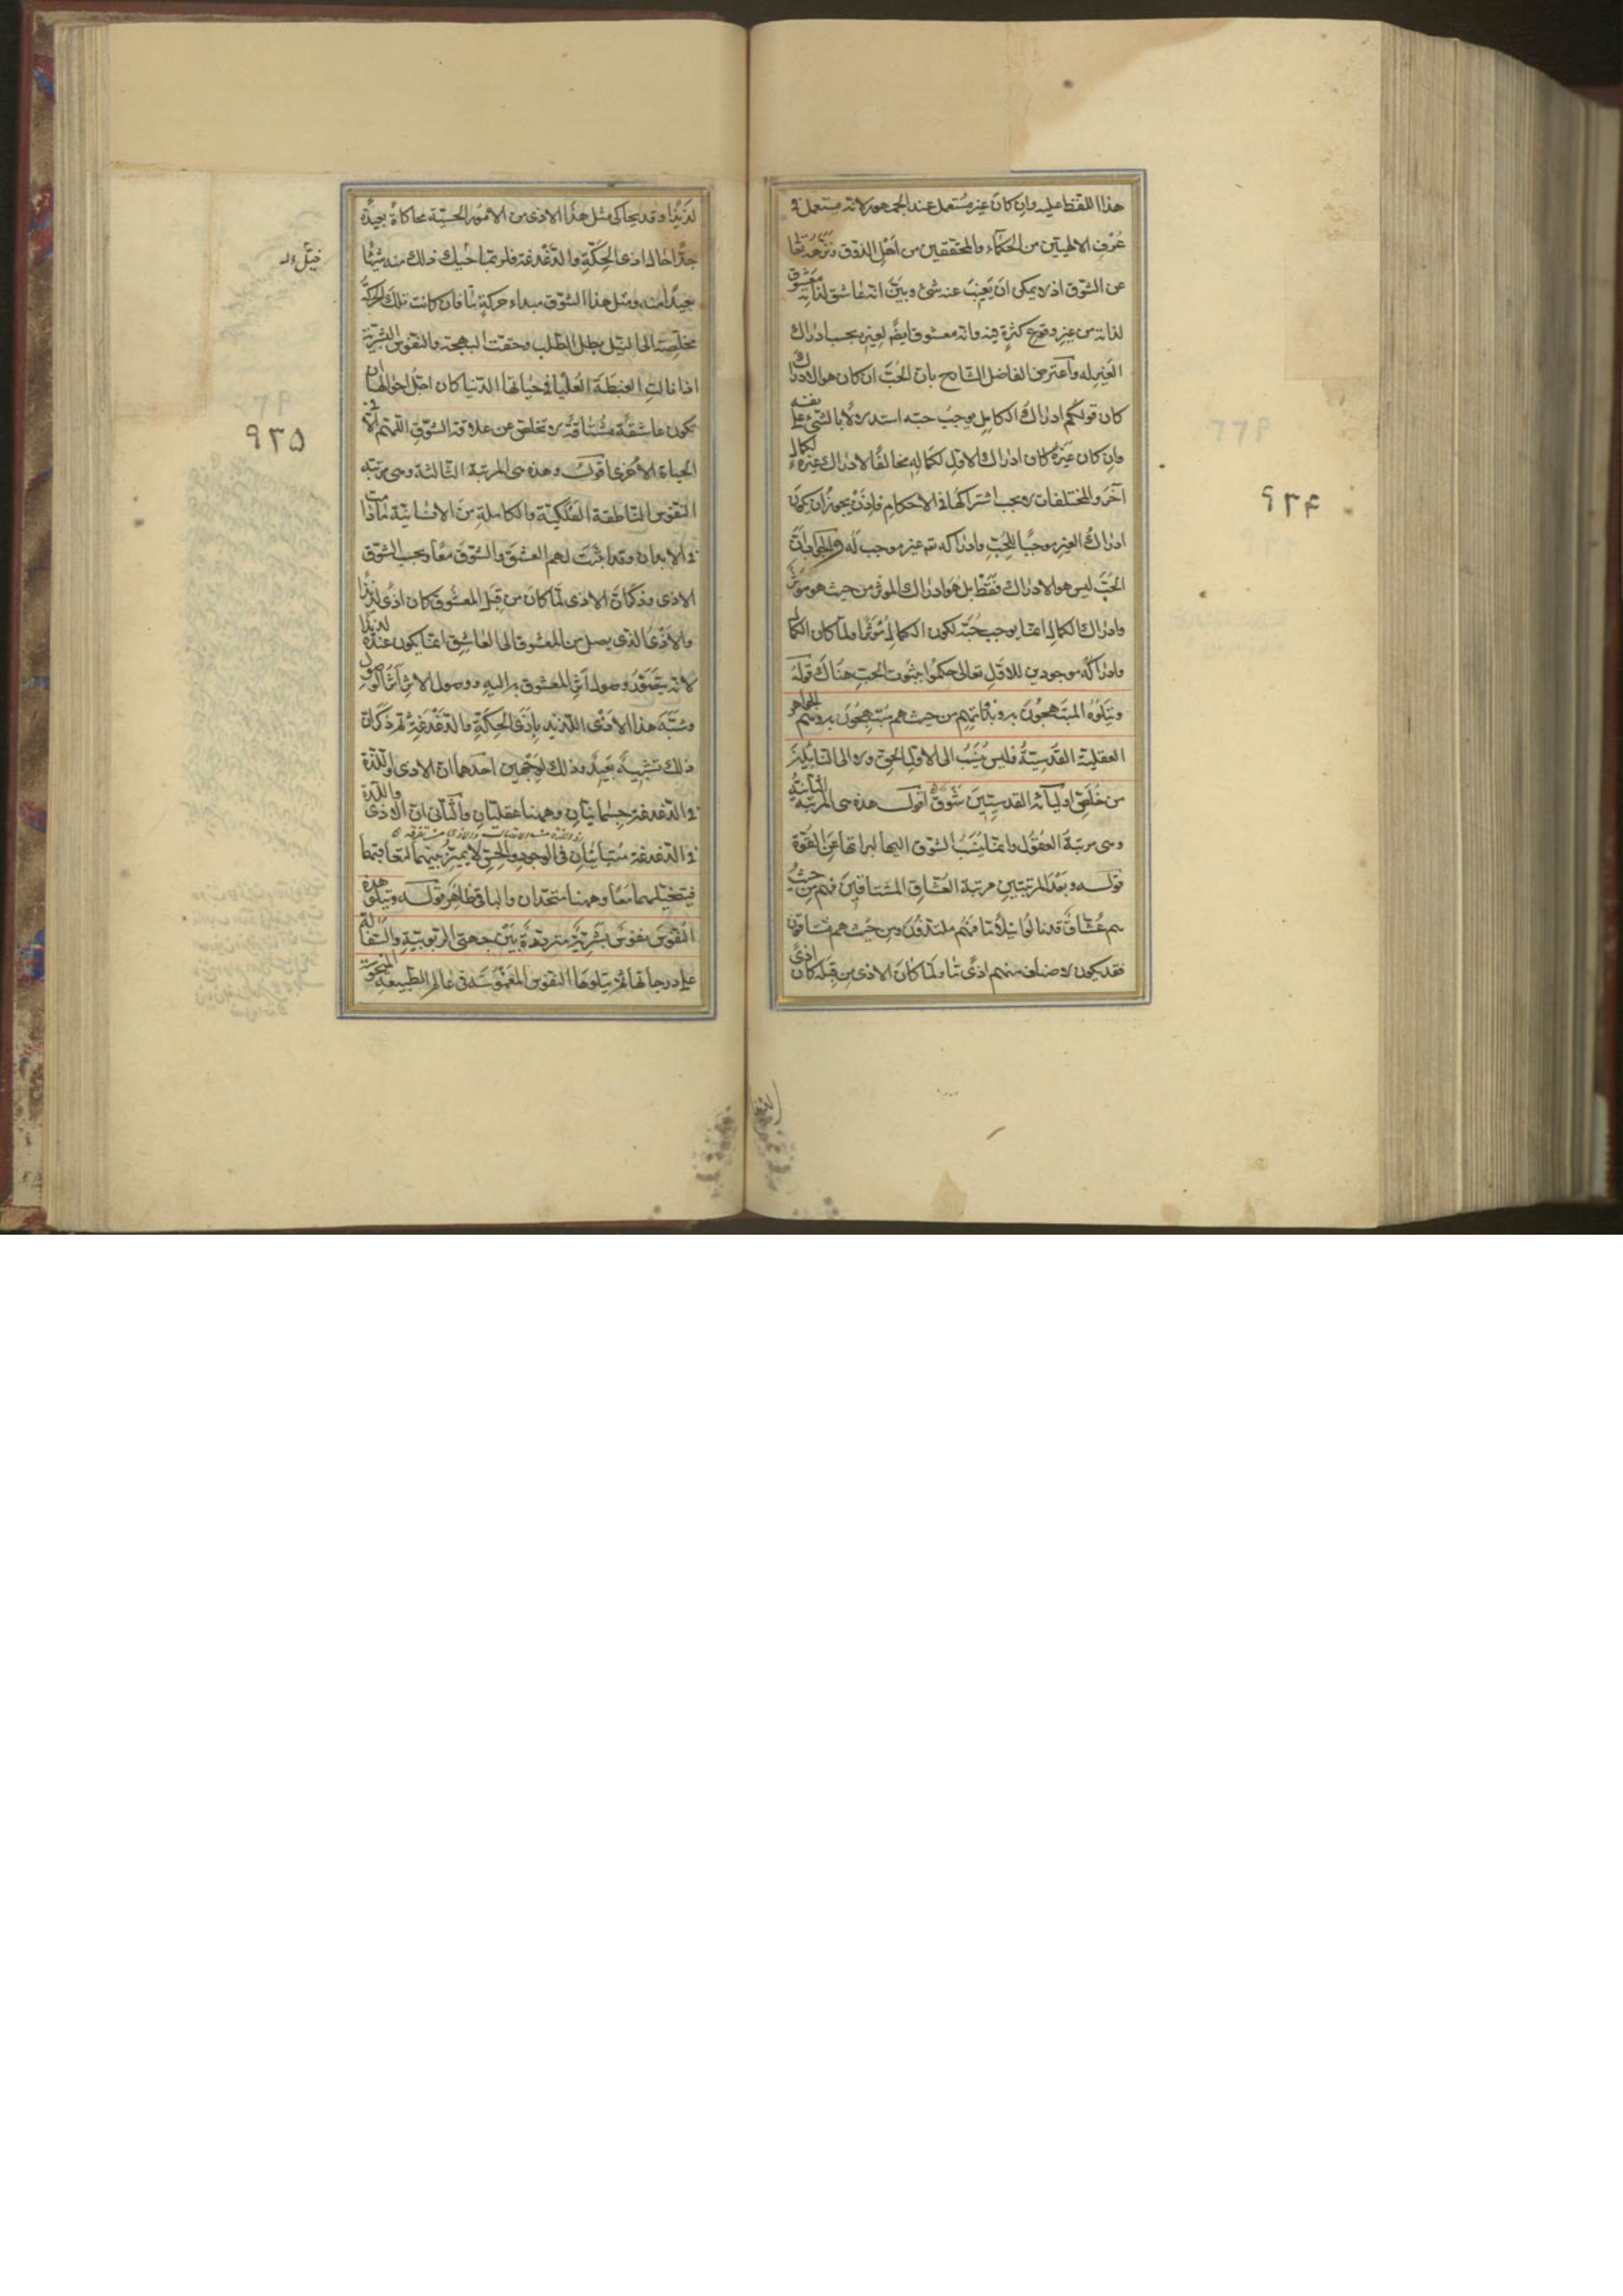 هذا اللفظ عليه وان كان غير مستعمل عند الجمهور لانه مستعمل فى
عُرف الالهيين من الحكماء والمحققين من اهل الذوق ونزّهه تعالى
عن الشوق اذ لا يمكن ان يغيب عنه شئ وبيّن انه عاشق لذاته معشوق
لذاته من غير وقوع كثرة فيه وانه معشوق ايضًا لغيره بحسب ادراك
الغير له واعترض الفاضل الشارح بان الحُبّ ان كان هو الادراك
كان قولكم ادراك الكامل يوجب حبه استدلالا بالشئ على نفسه
وان كان غيره كان ادراك الاول لكماله مخالفًا لادراك غيره لكمال
آخر والمختلفات لا يجب اشتراكها فى الاحكام فاذن يجوز ان يكون
ادراك الغير موجبًا للحُبّ وادراكه تم غير موجب له والجواب ان
الحُبّ ليس هو الادراك فقط بل هو ادراك المؤثر من حيث هو مؤثر
وادراك الكمال انما يوجب حُبّه لكون الكمال مُؤثرًا ولما كان الكمال
وادراكه موجودين للاول تعالى حكموا بثبوت الحبّ هناك قوله
ويتلوه المبتهجون به وبذاتهم من حيث هم مبتهجون به وهم الجواهر
العقلية القدسيّة فليس يُنسب الى الاول الحق ولا الى التالين
من خُلّص اوليائه القدسيين شوق اقول هذه هى المرتبة الثانية
وهى مرتبة العقول وانما لم يُنسب الشوق اليها لبراءتها عن القوة
قوله وبعد المرتبتين مرتبة العُشّاق المشتاقين فهم من حيث
هم عُشّاق قد نالوا نيلاً ما فهُم ملتذون ومن حيث هم مشتاقون
فقد يكون لاصناف منهم اذًى ما ولما كان الاذى من قِبَله كان اذًى
٩٣۴
لذيذًا وقد يحاكى مثل هذا الاذى من الامور الحسّيّة محاكاة بعيدة
جدًّا حال اذى الحِكّة والدغدغة فلربما خيّل ذلك منه شيئًا
بعيدًا منه ومثل هذا الشوق مبداء حركة ما فان كانت تلك الحركة
مخلّصة الى النيل بطل الطلب وحقت البهجة والنفوس البشرية
اذا نالت الغبطة العُليا فى حياتها الدنيا كان اجلّ احوالها ان
تكون عاشقةً مشتاقةً لا تخلص عن علاقة الشوق اللهم الّا فى
الحياة الاخرى اقول وهذه هى المرتبة الثالثة وهى مرتبة
النفوس الناطقة الفلكيّة والكاملة من الانسانيّة ما دامت
فى الابدان وقد اثبت لهم العشق والشوق معًا وبحسب الشوق
الاذى وذكر ان الاذى لما كان من قِبَل المعشوق كان اذًى لذيذًا
والاذى الذى يصل من المعشوق الى العاشق انما يكون عنده لذيذًا
لانه يتصور وصول اثر المعشوق به اليه ووصول الاثر اثر الوصول
وشبّه هذا الاذى اللذيذ باذى الحِكّة والدغدغة ثم ذكر ان
ذلك تشبيهٌ بعيدٌ وذلك لوجهين احدهما ان الاذى واللذة
فى الدغدغة جسمانيّان وههنا عقليّان والثانى ان الاذى واللذة
فى الدغدغة متباينان فى الوجود والحس لا يميز بينهما لتعاقبهما
فيتخيلهما معًا وههنا متحدان والباقى ظاهر قوله ويتلو هذه
النفوس نفوسٌ بشريّةٌ متردّدةٌ بين جهتى الربوبيّة والسفالة
على درجاتها ثم يتلوها النفوس المغموسة فى عالم الطبيعة المنحوسة
٩٣۵